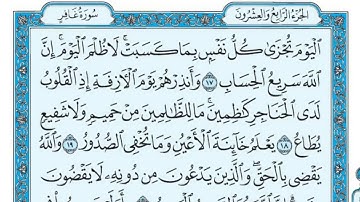 سُورَةُ غَافِرٍ الجُزْءُ الرَّابِعُ وَالعِشْرُونَ
ٱلۡيَوۡمَ تُجۡزَىٰ كُلُّ نَفۡسِۭ بِمَا كَسَبَتۡۚ لَا ظُلۡمَ ٱلۡيَوۡمَۚ إِنَّ
ٱللَّهَ سَرِيعُ ٱلۡحِسَابِ ١٧ وَأَنذِرۡهُمۡ يَوۡمَ ٱلۡأٓزِفَةِ إِذِ ٱلۡقُلُوبُ
لَدَى ٱلۡحَنَاجِرِ كَٰظِمِينَۚ مَا لِلظَّٰلِمِينَ مِنۡ حَمِيمٖ وَلَا شَفِيعٖ
يُطَاعُ ١٨ يَعۡلَمُ خَآئِنَةَ ٱلۡأَعۡيُنِ وَمَا تُخۡفِي ٱلصُّدُورُ ١٩ وَٱللَّهُ
يَقۡضِي بِٱلۡحَقِّۖ وَٱلَّذِينَ يَدۡعُونَ مِن دُونِهِۦ لَا يَقۡضُونَ